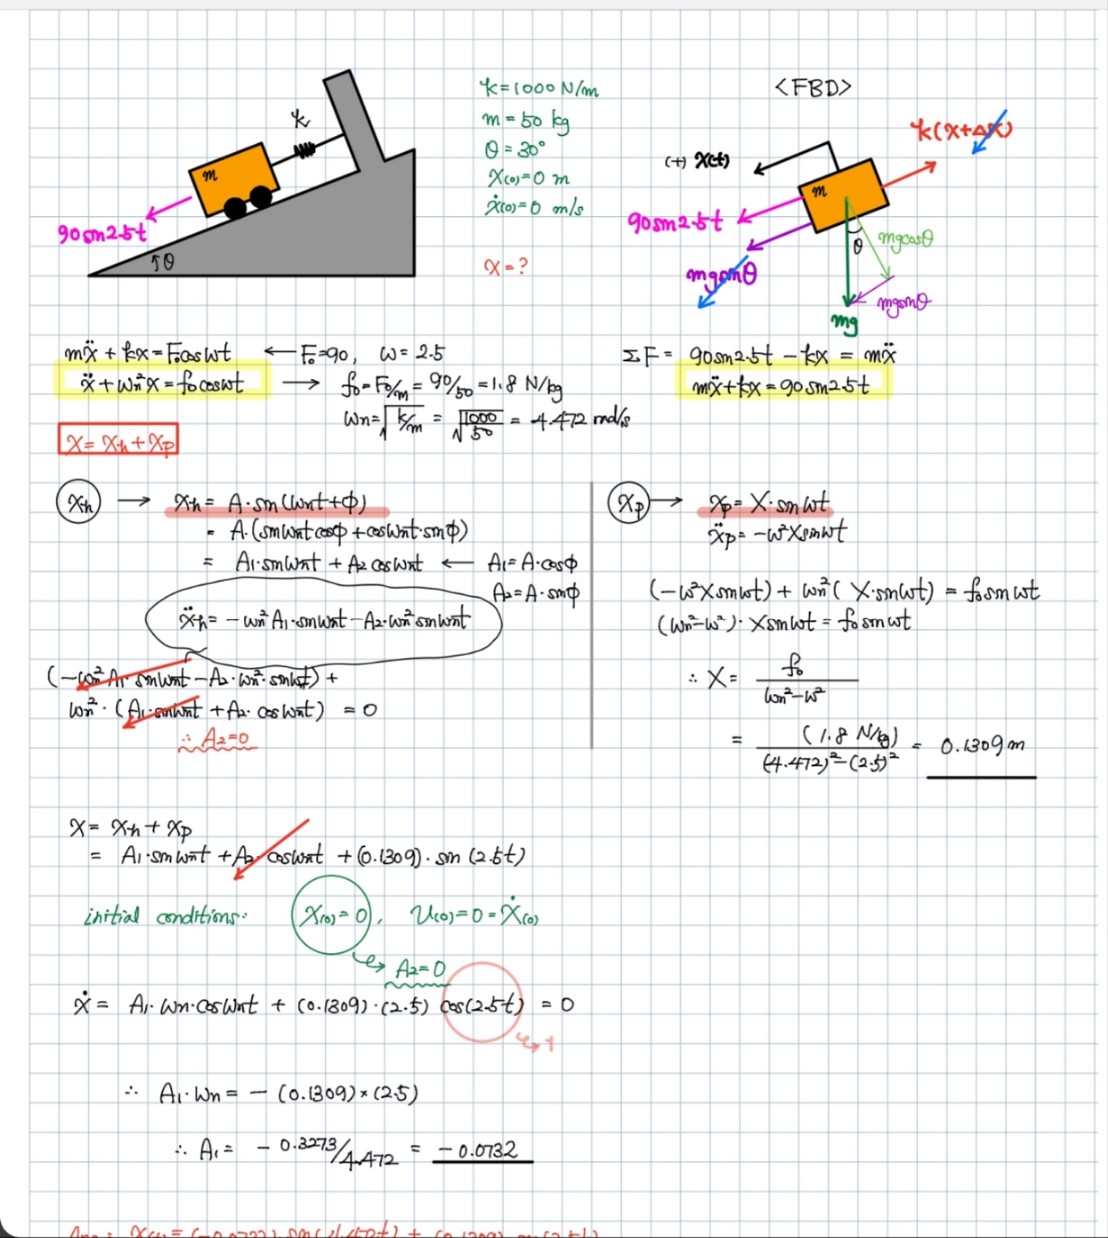 k
m
90sin2.5t
θ
k=1000 N/m
m=50 kg
θ=30°
X(0)=0 m
ẋ(0)=0 m/s
x=?
<FBD>
k(x+Δx)
(+) x(t)
m
90sin2.5t
mgsinθ
θ
mgcosθ
mgsinθ
mg
mẍ + kx = F₀cosωt ← F₀=90, ω=2.5
ẍ + ωn²x = f₀cosωt → f₀=F₀/m = 90/50 = 1.8 N/kg
ωn=√k/m = √1000/50 = 4.472 rad/s
X = Xh + Xp
ΣF = 90sin2.5t - kx = mẍ
mẍ+kx = 90sin2.5t
Xh → Xh = A·sin(ωnt+φ)
= A·(sinωnt cosφ + cosωnt·sinφ)
= A₁·sinωnt + A₂cosωnt ← A₁=A·cosφ
A₂=A·sinφ
ẍh = -ωn²A₁·sinωnt-A₂·ωn²sinωnt
(-ωn²A₁·sinωnt-A₂·ωn²·sinωt) +
ωn²·(A₁·sinωnt + A₂·cosωnt) = 0
∴ A₂=0
Xp → Xp = X·sinωt
ẍp = -ω²Xsinωt
(-ω²Xsinωt) + ωn²(X·sinωt) = f₀sinωt
(ωn²-ω²)·Xsinωt = f₀sinωt
∴ X = f₀/ωn²-ω²
= (1.8 N/kg)/(4.472)²-(2.5)² = 0.1309m
X = Xh + Xp
= A₁·sinωnt + A₂·cosωnt + (0.1309)·sin(2.5t)
initial conditions: X(0)=0, V(0)=0=ẋ(0)
→ A₂=0
ẋ = A₁·ωn·cosωnt + (0.1309)·(2.5) cos(2.5t) = 0
→ 1
∴ A₁·ωn = -(0.1309)×(2.5)
∴ A₁ = -0.3273/4.472 = -0.0732